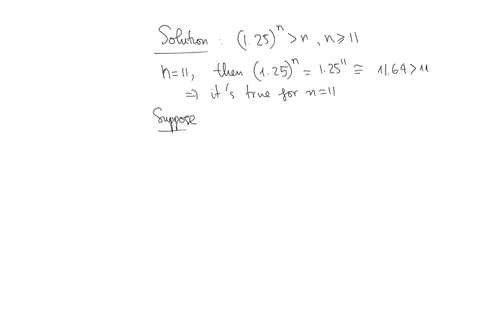 Solution : (1.25)^n > n , n ⩾ 11
n=11, then (1.25)^n = 1.25^11 ≅ 11.64 > 11
⇒ it's true for n=11
Suppose